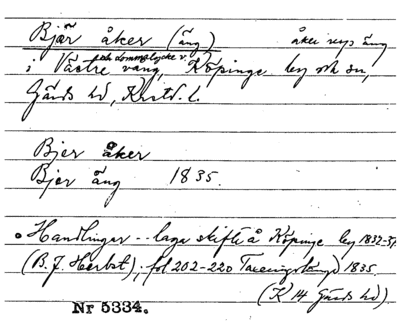 Bjär åker (äng) åker resp äng
och dommslycke v.
i Västre vang, Köpinge by och sn,
Gärds hd, Krstd. l.
Bjer åker
Bjer äng 1835.
Handlingar .. laga skifte å Köpinge by 1832-37
(B. J. Herbst); fol 202-220 Taxeringslängd 1835.
(K 14 Gärds hd)
Nr 5334.